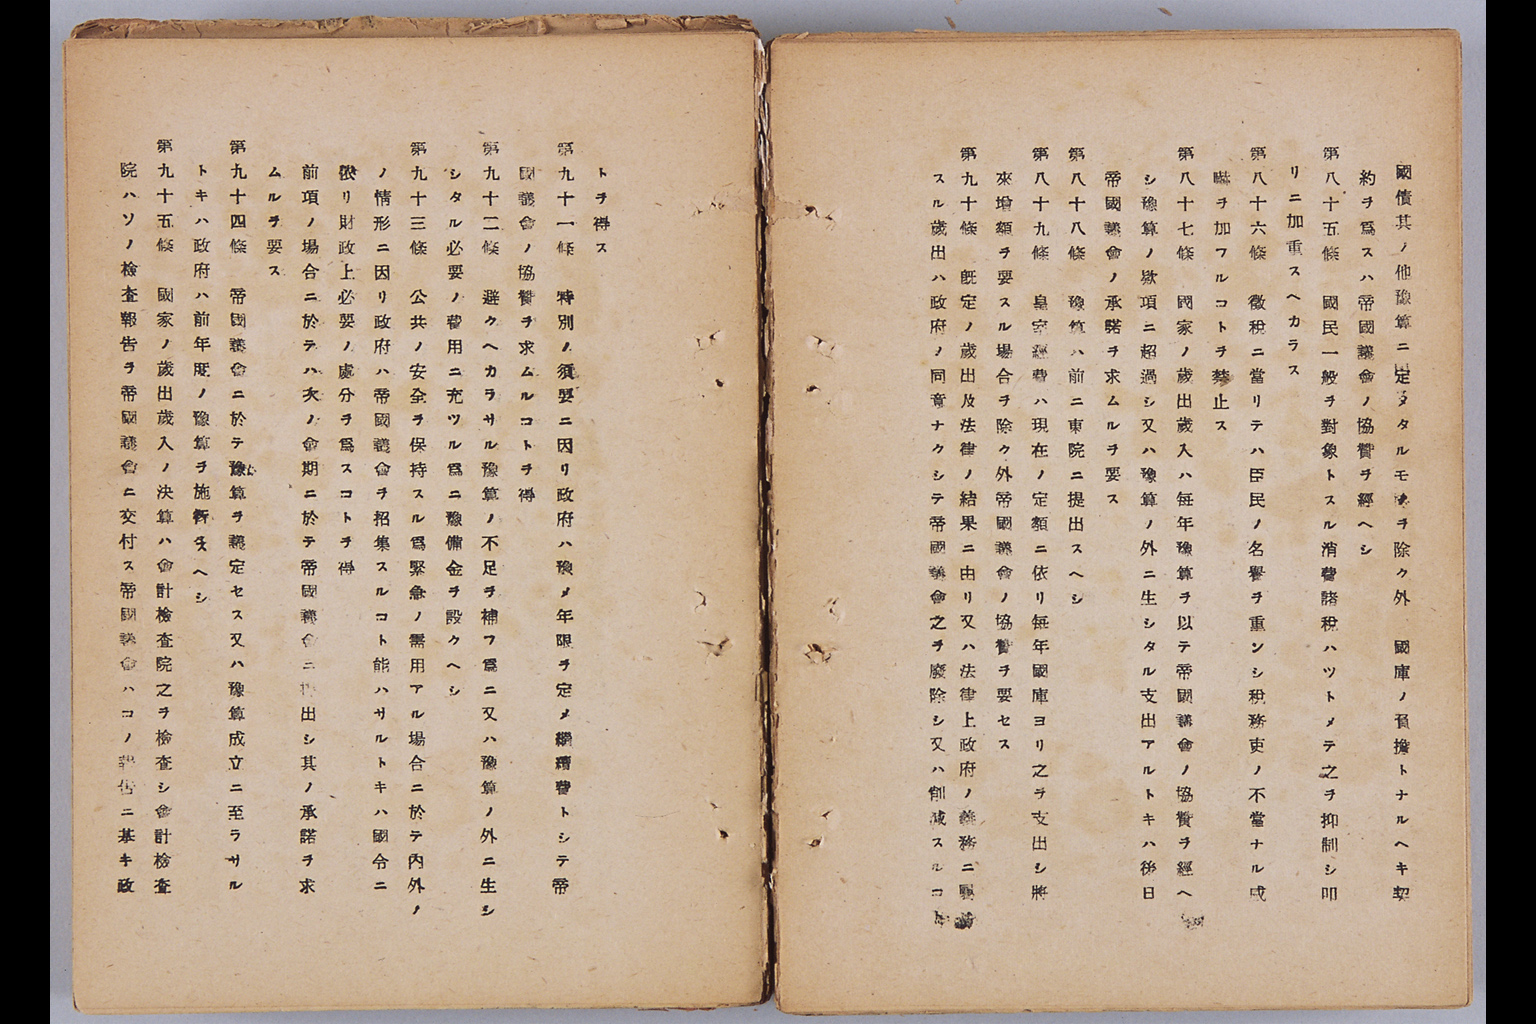 國債其ノ他豫算ニ定メタルモノヲ除ク外 國庫ノ負擔トナルヘキ契
約ヲ爲スハ帝國議會ノ協贊ヲ經ヘシ
第八十五條 國民一般ヲ對象トスル消費諸稅ハツトメテ之ヲ抑制シ叩
リニ加重スヘカラス
第八十六條 徵稅ニ當リテハ臣民ノ名譽ヲ重ンシ稅務吏ノ不當ナル威
嚇ヲ加フルコトヲ禁止ス
第八十七條 國家ノ歲出歲入ハ每年豫算ヲ以テ帝國議會ノ協贊ヲ經ヘ
シ豫算ノ欵項ニ超過シ又ハ豫算ノ外ニ生シタル支出アルトキハ後日
帝國議會ノ承諾ヲ求ムルヲ要ス
第八十八條 豫算ハ前ニ東院ニ提出スヘシ
第八十九條 皇室經費ハ現在ノ定額ニ依リ每年國庫ヨリ之ヲ支出シ將
來增額ヲ要スル場合ヲ除ク外帝國議會ノ協贊ヲ要セス
第九十條 旣定ノ歲出及法律ノ結果ニ由リ又ハ法律上政府ノ義務ニ屬
スル歲出ハ政府ノ同意ナクシテ帝國議會之ヲ廢除シ又ハ削減スルコ
トヲ得ス
第九十一條 特別ノ須要ニ因リ政府ハ豫メ年限ヲ定メ繼續費トシテ帝
國議會ノ協贊ヲ求ムルコトヲ得
第九十二條 避クヘカラサル豫算ノ不足ヲ補フ爲ニ又ハ豫算ノ外ニ生シ
シタル必要ノ費用ニ充ツル爲ニ豫備金ヲ設クヘシ
第九十三條 公共ノ安全ヲ保持スル爲緊急ノ需用アル場合ニ於テ內外ノ
ノ情形ニ因リ政府ハ帝國議會ヲ招集スルコト能ハサルトキハ國令ニ
依リ財政上必要ノ處分ヲ爲スコトヲ得
前項ノ場合ニ於テハ次ノ會期ニ於テ帝國議會ニ提出シ其ノ承諾ヲ求
ムルヲ要ス
第九十四條 帝國議會ニ於テ豫算ヲ議定セス又ハ豫算成立ニ至ラサル
トキハ政府ハ前年度ノ豫算ヲ施行スヘシ
第九十五條 國家ノ歲出歲入ノ決算ハ會計檢查院之ヲ檢查シ會計檢查
院ハソノ檢查報告ヲ帝國議會ニ交付ス帝國議會ハコノ報告ニ基キ政